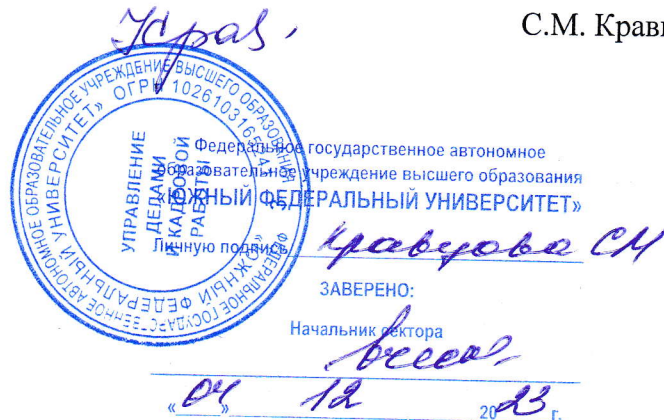 С.М. Крав
ФЕДЕРАЛЬНОЕ ГОСУДАРСТВЕННОЕ АВТОНОМНОЕ ОБРАЗОВАТЕЛЬНОЕ УЧРЕЖДЕНИЕ ВЫСШЕГО ОБРАЗОВАНИЯ
«ЮЖНЫЙ ФЕДЕРАЛЬНЫЙ УНИВЕРСИТЕТ» ОГРН
УПРАВЛЕНИЕ
ДЕЛАМИ
И КАДРОВОЙ
РАБОТЫ
Федеральное государственное автономное
образовательное учреждение высшего образования
«ЮЖНЫЙ ФЕДЕРАЛЬНЫЙ УНИВЕРСИТЕТ»
Личную подпись Кравцова СМ
ЗАВЕРЕНО:
Начальник сектора
«04» 12 2023 г.